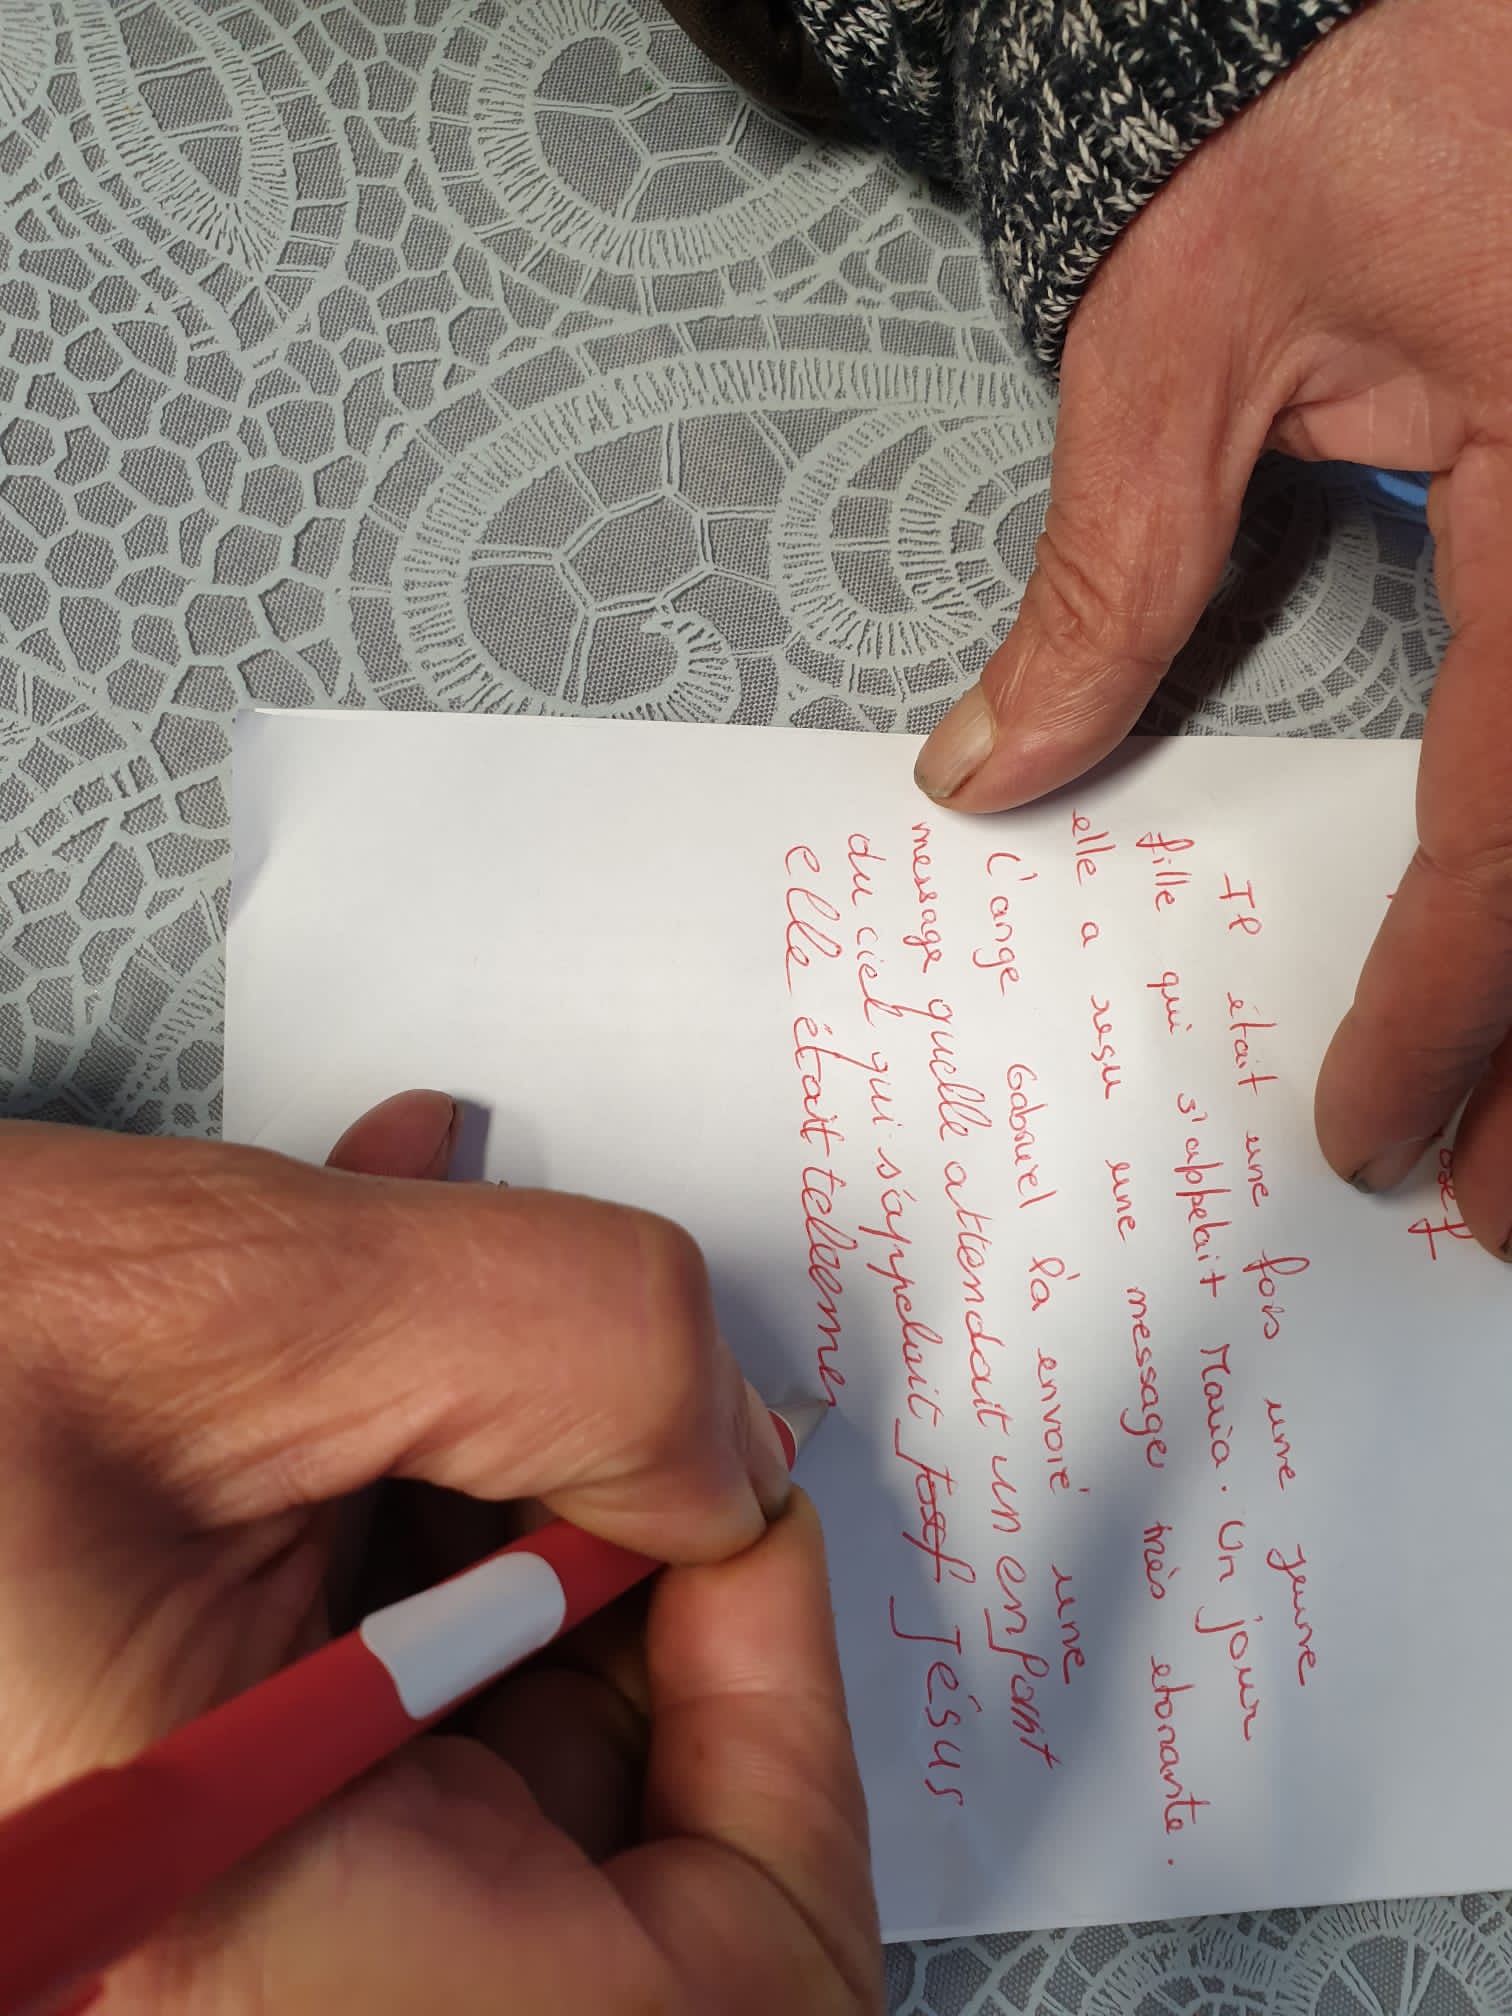 Il était une fois une jeune
fille qui s'appelait Maria. Un jour
elle a resu une message très etonante.
L'ange Gabriel l'a envoié une
message quelle attendait un enfant
du ciel qui s'appelait Josef Jésus
elle était telleeme